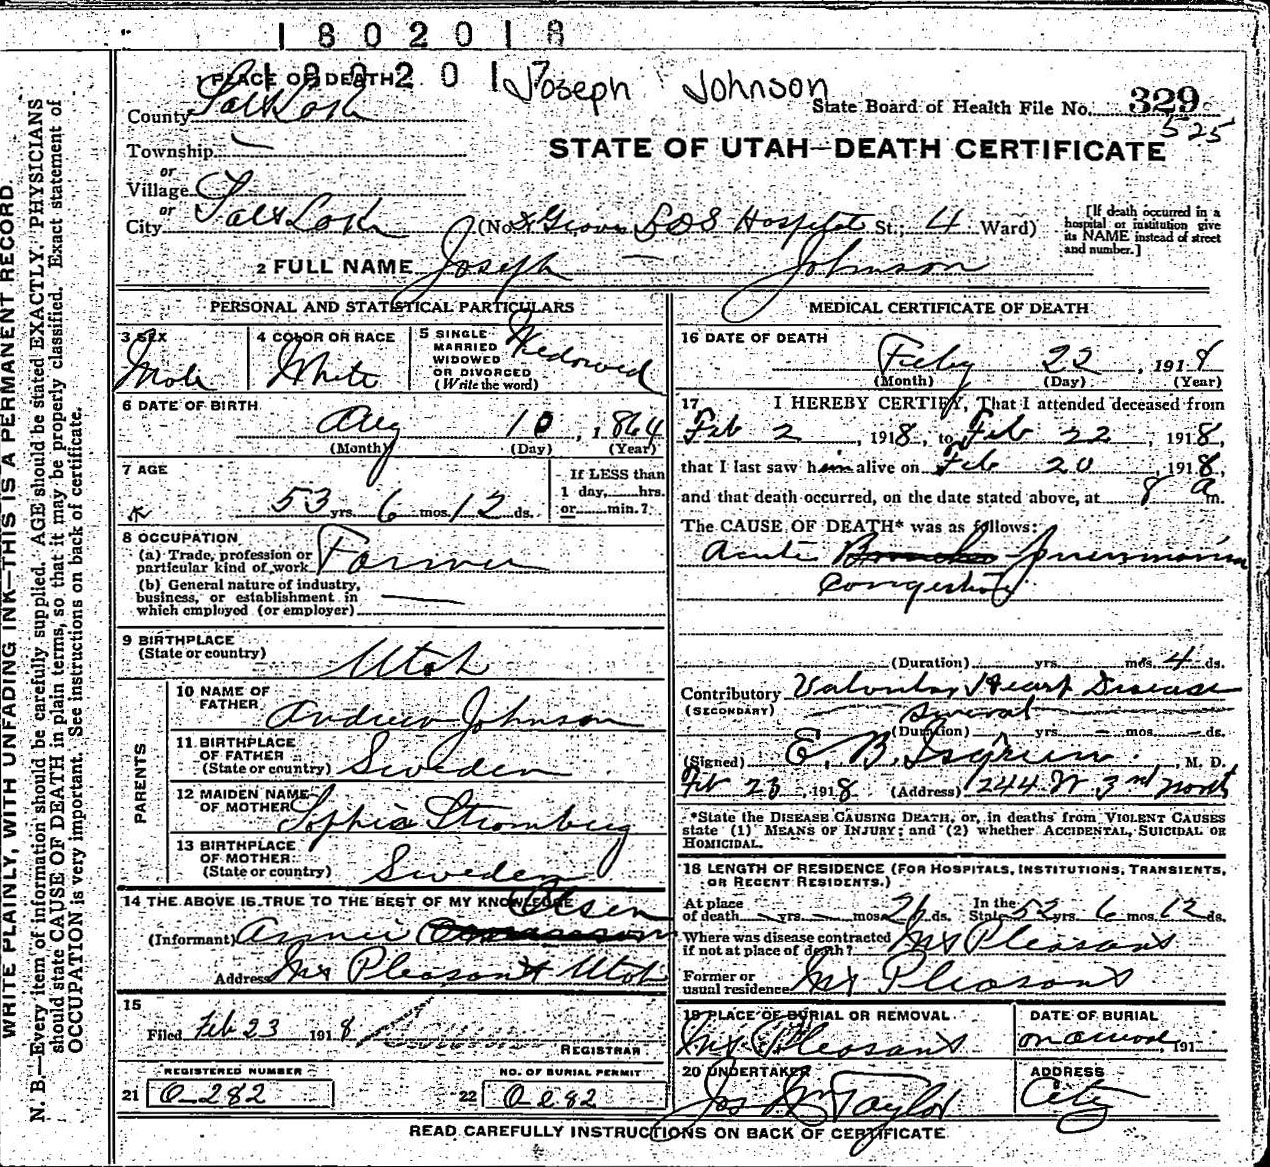 1802018
180201
Joseph Johnson
1 PLACE OF DEATH
County Salt Lake
State Board of Health File No. 329
525
Township —
STATE OF UTAH—DEATH CERTIFICATE
or
Village
or
City Salt Lake (No. Groves LDS Hospital St.; 4 Ward)
[If death occurred in a hospital or institution give its NAME instead of street and number.]
2 FULL NAME Joseph — Johnson
PERSONAL AND STATISTICAL PARTICULARS
3 SEX
Male
4 COLOR OR RACE
White
5 SINGLE
MARRIED
WIDOWED
OR DIVORCED
(Write the word)
Widowed
6 DATE OF BIRTH
Aug 10, 1864
(Month) (Day) (Year)
7 AGE
53 yrs. 6 mos. 12 ds.
If LESS than
1 day, hrs.
or min.?
8 OCCUPATION
(a) Trade, profession or
particular kind of work Farmer
(b) General nature of industry,
business, or establishment in
which employed (or employer) —
9 BIRTHPLACE
(State or country) Utah
PARENTS
10 NAME OF
FATHER Andrew Johnson
11 BIRTHPLACE
OF FATHER
(State or country) Sweden
12 MAIDEN NAME
OF MOTHER Sophia Stromberg
13 BIRTHPLACE
OF MOTHER
(State or country) Sweden
14 THE ABOVE IS TRUE TO THE BEST OF MY KNOWLEDGE
Olsen
(Informant) Annie
Address Mt Pleasant Utah
15
Filed Feb 23 1918
REGISTRAR
REGISTERED NUMBER
21 0-282
NO. OF BURIAL PERMIT
22 0282
MEDICAL CERTIFICATE OF DEATH
16 DATE OF DEATH
Feby 22, 1918
(Month) (Day) (Year)
17 I HEREBY CERTIFY, That I attended deceased from
Feb 2, 1918, to Feb 22, 1918,
that I last saw him alive on Feb 20, 1918,
and that death occurred, on the date stated above, at 8 a m.
The CAUSE OF DEATH* was as follows:
Acute pneumonia
Congestion
(Duration) yrs. mos. 4 ds.
Contributory Valvular Heart Disease
(SECONDARY)
several
(Duration) yrs. — mos. — ds.
(Signed) E. B. Isgreen, M. D.
Feb 23, 1918 (Address) 1244 W 3rd North
*State the DISEASE CAUSING DEATH, or, in deaths from VIOLENT CAUSES
state (1) MEANS OF INJURY; and (2) whether ACCIDENTAL, SUICIDAL OR
HOMICIDAL.
18 LENGTH OF RESIDENCE (FOR HOSPITALS, INSTITUTIONS, TRANSIENTS,
OR RECENT RESIDENTS.)
At place
of death — yrs. — mos. ds.
In the
State 53 yrs. 6 mos. 12 ds.
Where was disease contracted
if not at place of death? Mt Pleasant
Former or
usual residence Mt Pleasant
19 PLACE OF BURIAL OR REMOVAL
Mt. Pleasant
DATE OF BURIAL
on arrival, 191
20 UNDERTAKER
Jos Wm Taylor
ADDRESS
City
READ CAREFULLY INSTRUCTIONS ON BACK OF CERTIFICATE
WRITE PLAINLY, WITH UNFADING INK—THIS IS A PERMANENT RECORD.
N. B.—Every item of information should be carefully supplied. AGE should be stated EXACTLY. PHYSICIANS
should state CAUSE OF DEATH in plain terms, so that it may be properly classified. Exact statement of
OCCUPATION is very important. See instructions on back of certificate.